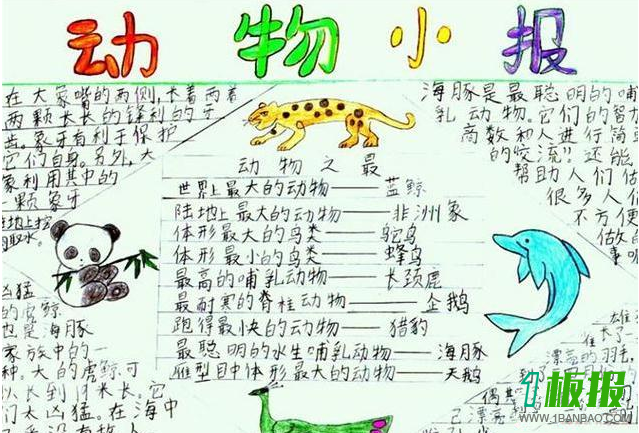 动物小报
在大象嘴的两侧,长着两着
两颗长长的锋利的牙
齿。象牙有利于保护
它们自身。另外,大
象利用其中的
一颗象牙
海豚是最聪明的哺
乳动物。它们的智力
商数和人进行简
的交流!!还能
帮助人们做
很多人们
不方便
做的
事
动物之最
世界上最大的动物——蓝鲸
陆地上最大的动物——非洲象
体形最大的鸟类——鸵鸟
体形最小的鸟类——蜂鸟
最高的哺乳动物——长颈鹿
最耐寒的脊柱动物——企鹅
跑得最快的动物——猎豹
最聪明的水生哺乳动物——海豚
雁型目中体形最大的动物——天鹅
凶猛
的虎鲸
也是海豚
家族中的一
种。大的虎鲸可
以长到10米长。它
们太凶猛。在海中
1板报
WWW.1BANBAO.COM